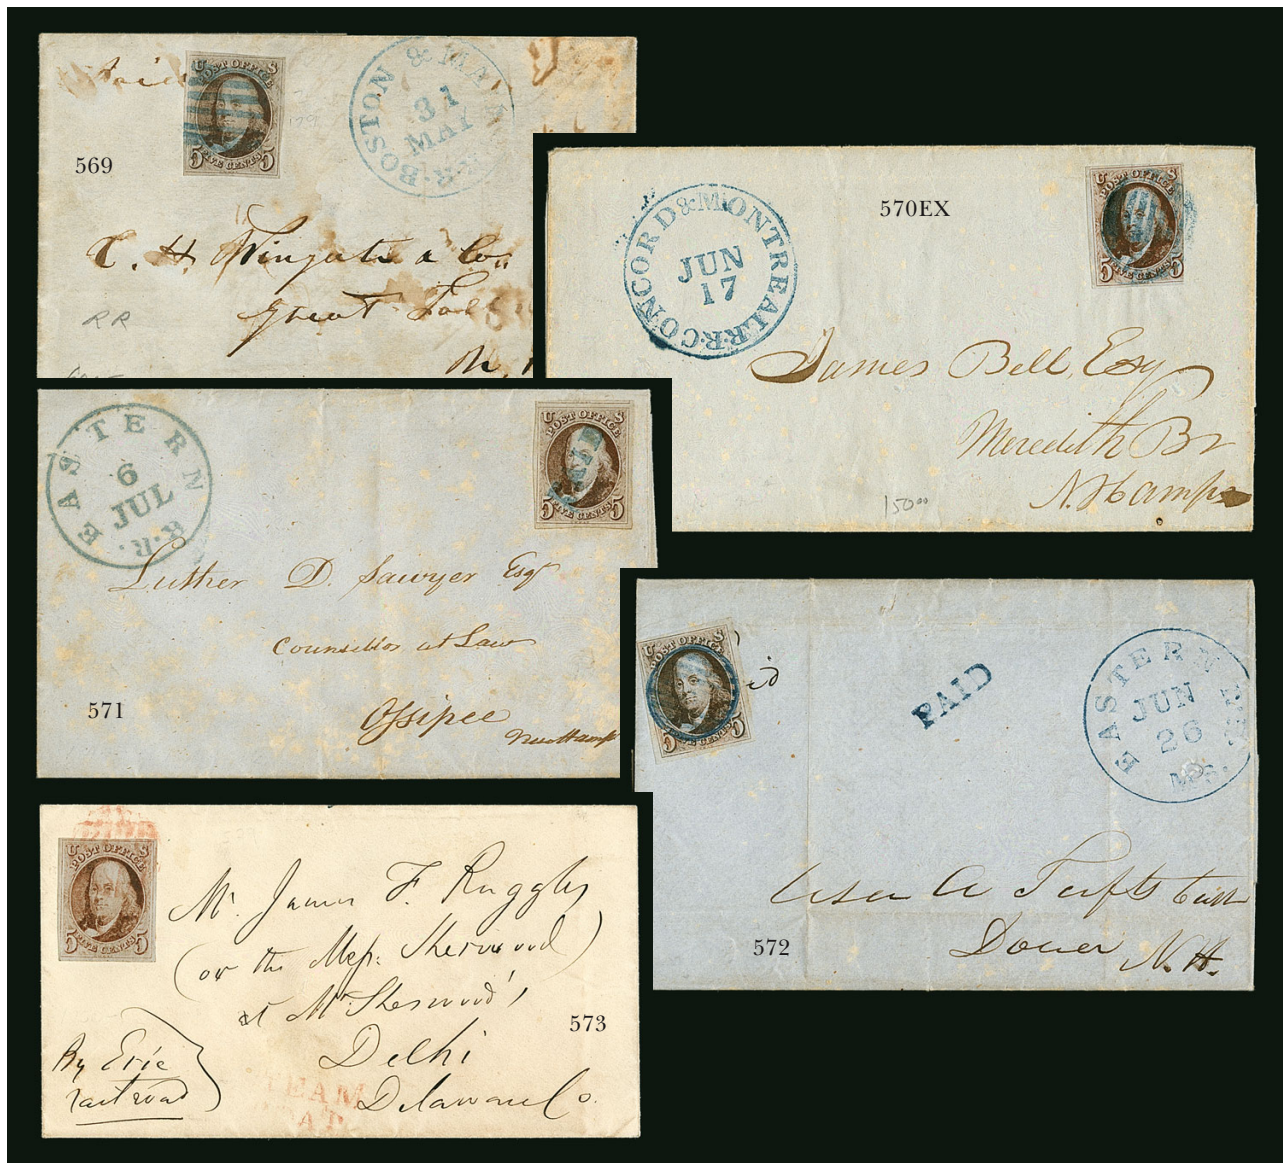 Paid
U S
POST OFFICE
5 FIVE CENTS 5
BOSTON & MAINE R.R.
31
MAY
569
C. H. Wingate & Co.
Great Falls
N.
RR
CONCORD & MONTREAL R.R.
JUN
17
570EX
U S
POST OFFICE
5 FIVE CENTS 5
James Bell, Esq
Meredith Br
N. Hamp
150.00
EASTERN R.R.
6
JUL
U S
POST OFFICE
5 FIVE CENTS 5
Luther D. Sawyer Esqr
Counsellor at Law
571
Ossipee
New Hamp
U S
POST OFFICE
5 FIVE CENTS 5
PAID
EASTERN R.R.
JUN
26
MS.
Asa A Tufts
572
Dover N.H.
U S
POST OFFICE
5 FIVE CENTS 5
Mr. James F. Ruggles
(or the Sherwood)
at Mr. Sherwood's
573
Delhi
By Erie
railroad
Delaware Co.
TEAM
AT